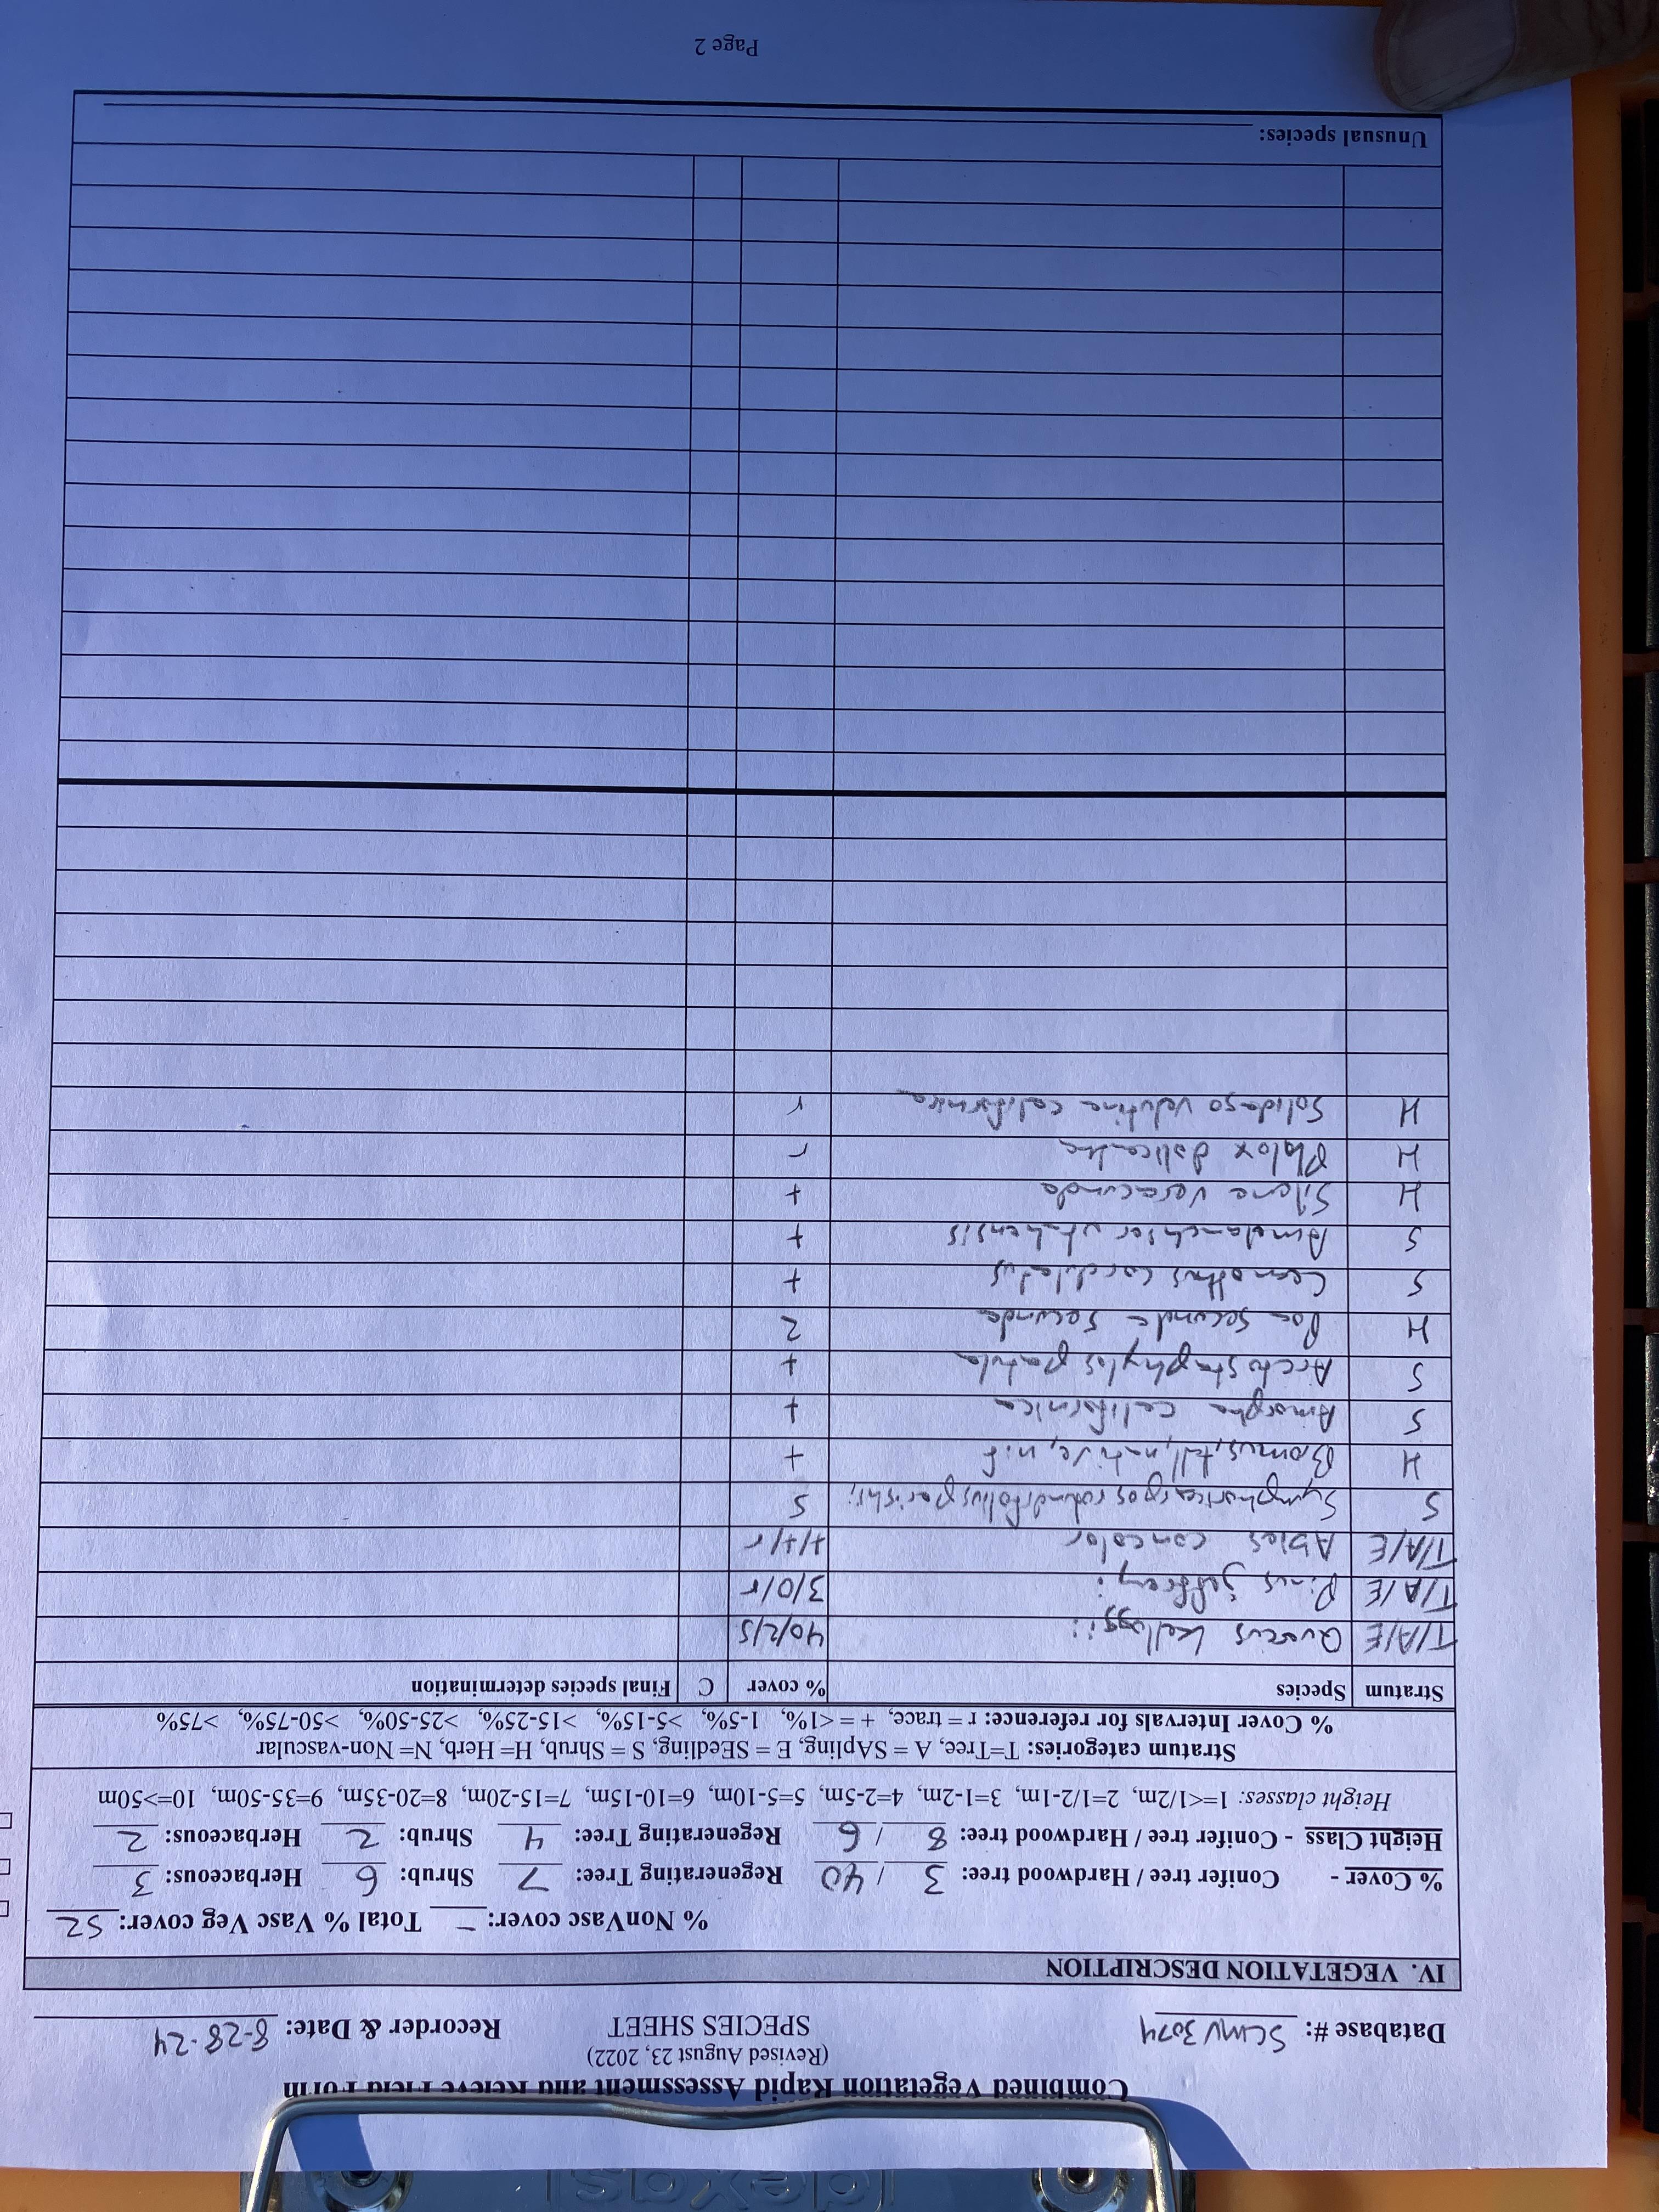 Combined Vegetation Rapid Assessment and Relevé Field Form
(Revised August 23, 2022)
Database #: SCMV3074 SPECIES SHEET Recorder & Date: 8-28-24
IV. VEGETATION DESCRIPTION
% NonVasc cover: - Total % Vasc Veg cover: 52
% Cover - Conifer tree / Hardwood tree: 3 / 40 Regenerating Tree: 7 Shrub: 6 Herbaceous: 3
Height Class - Conifer tree / Hardwood tree: 8 / 6 Regenerating Tree: 4 Shrub: 2 Herbaceous: 2
Height classes: 1=<1/2m, 2=1/2-1m, 3=1-2m, 4=2-5m, 5=5-10m, 6=10-15m, 7=15-20m, 8=20-35m, 9=35-50m, 10=>50m
Stratum categories: T=Tree, A = SApling, E = SEedling, S = Shrub, H= Herb, N= Non-vascular
% Cover Intervals for reference: r = trace, + = <1%, 1-5%, >5-15%, >15-25%, >25-50%, >50-75%, >75%
Stratum Species % cover C Final species determination
T/A/E Quercus kelloggii 40/2/5
T/A/E Pinus jeffreyi 3/0/r
T/A/E Abies concolor +/+/r
S Symphoricarpos rotundifolius parishii 5
H Bromus, tall, native, n.f +
S Amorpha californica +
S Arctostaphylos patula +
H Poa secunda secunda 2
S Ceanothus cordulatus +
S Amelanchier utahensis +
H Silene veracunda +
H Phlox dolicantha r
H Solidago velutina californica r
Unusual species:
Page 2
texas